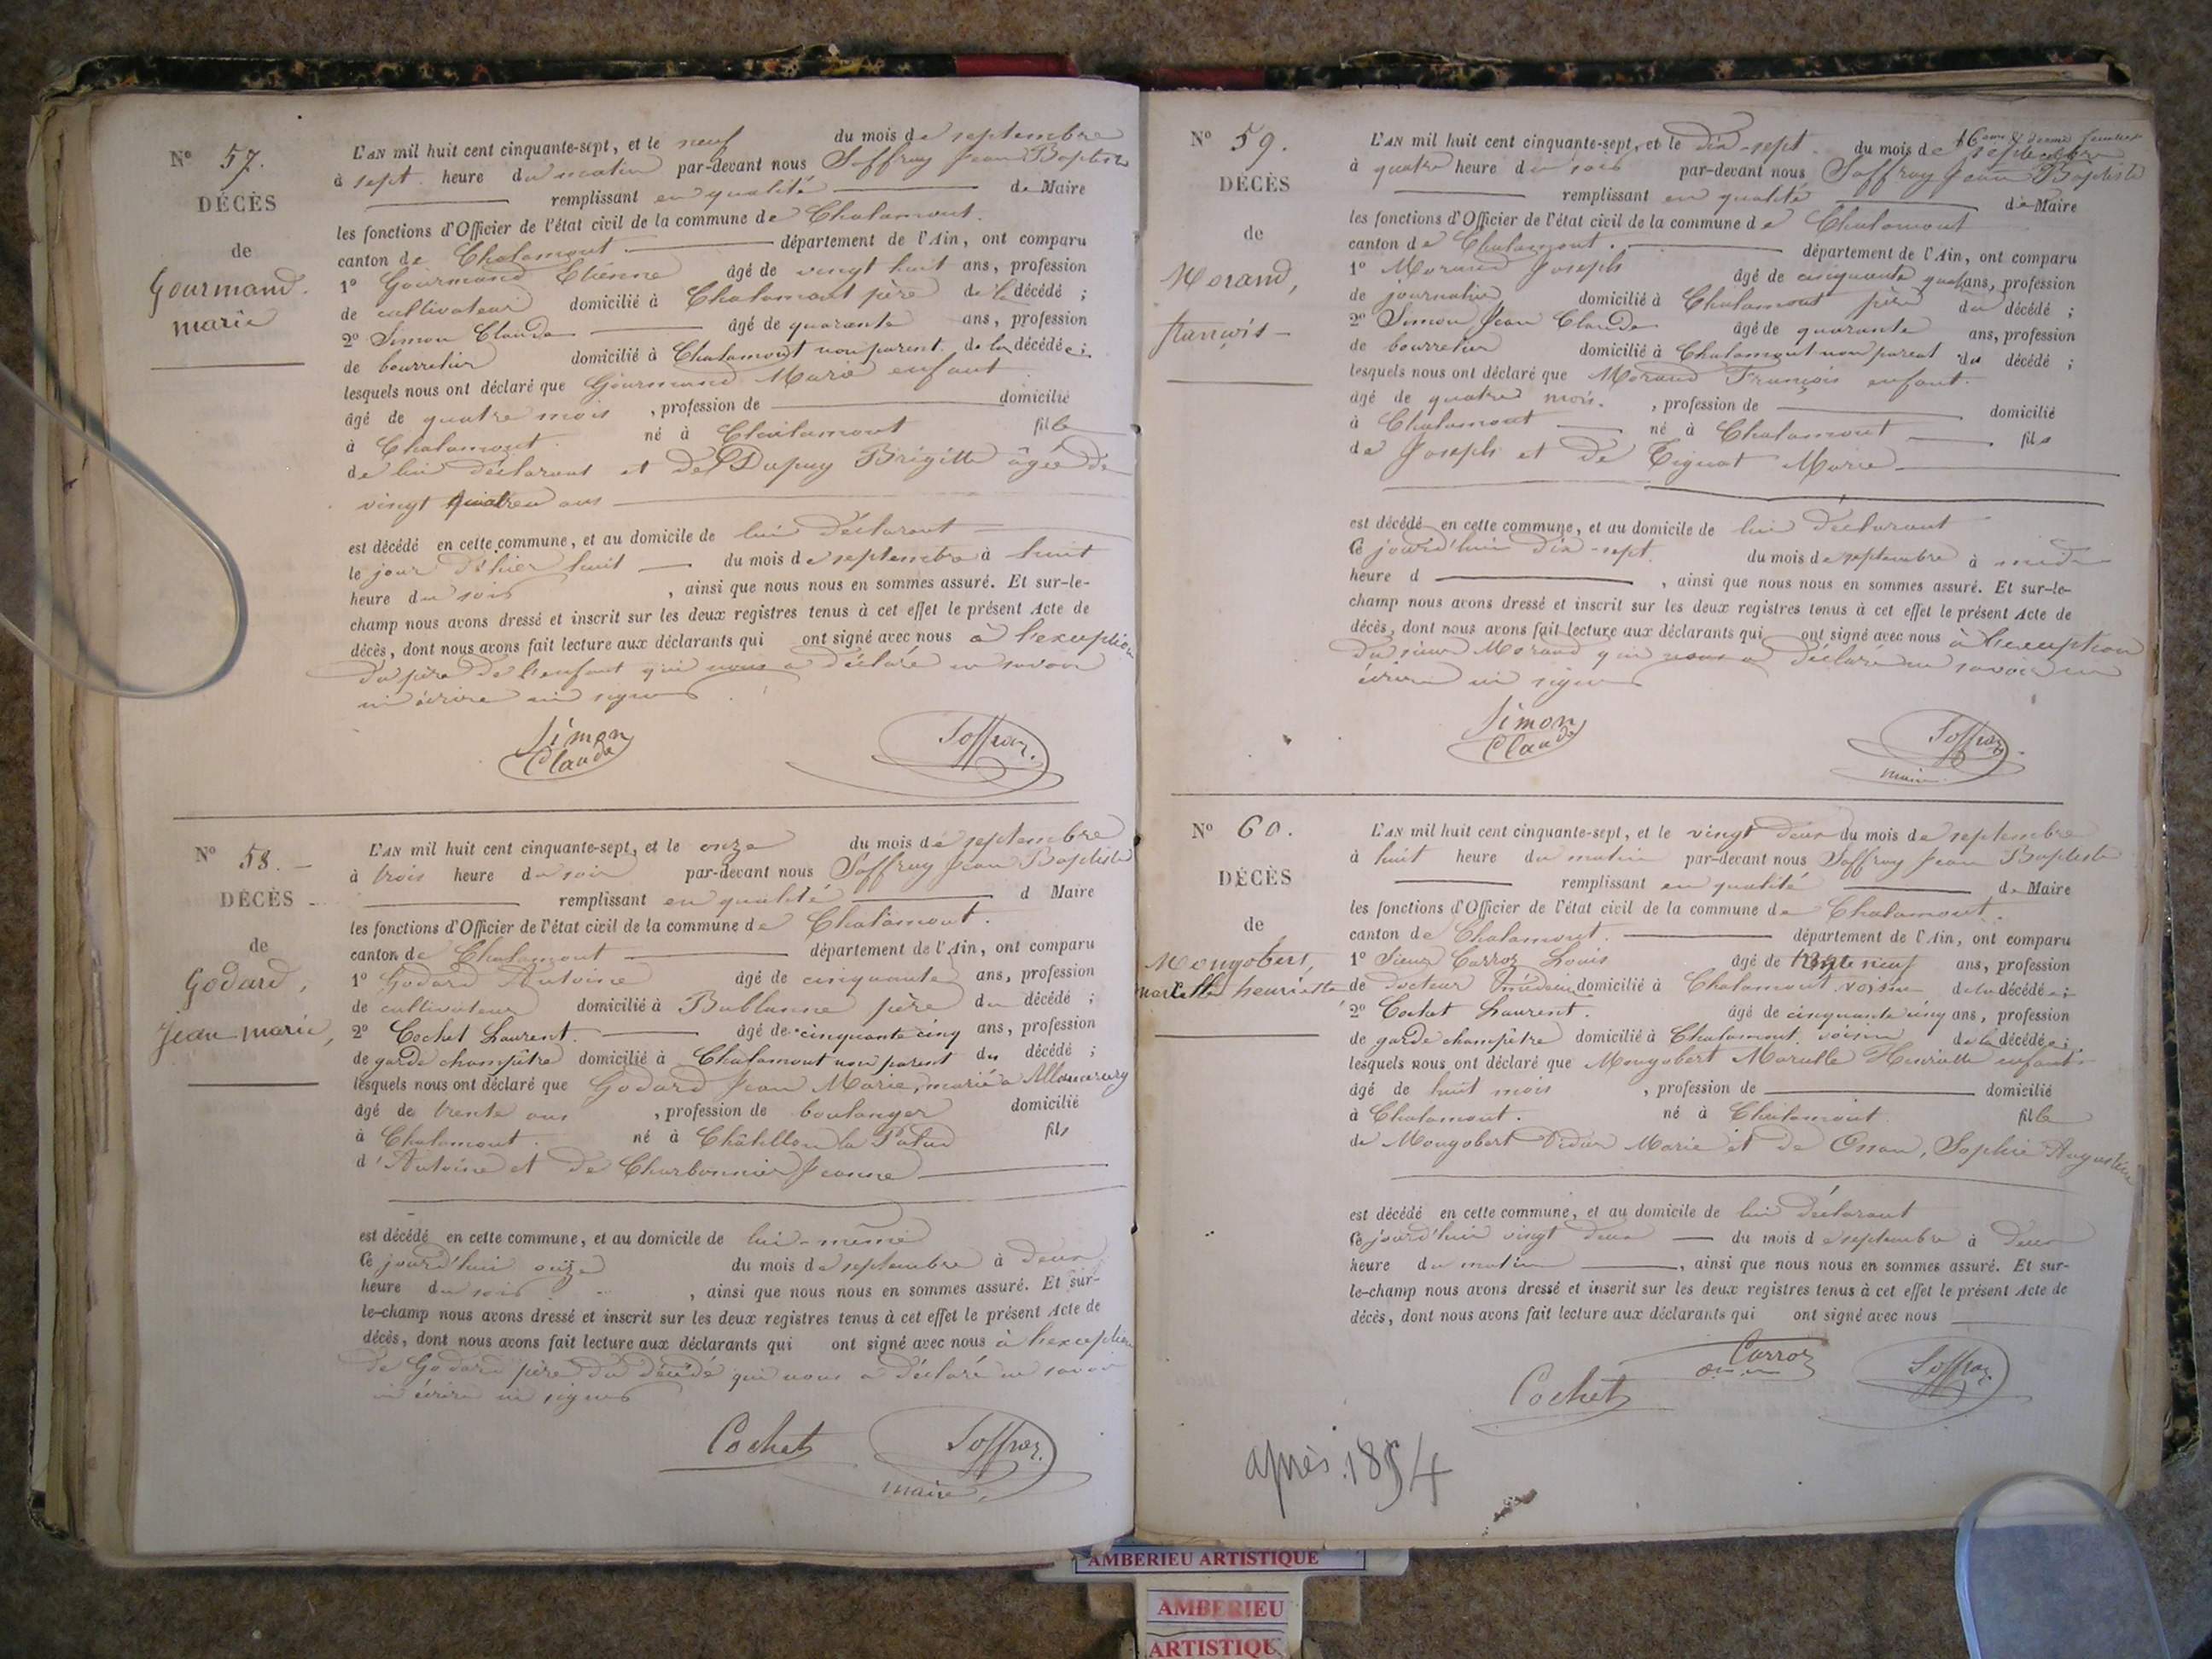 N° 57.
DÉCÈS
de
Gourmand
marie
L'AN mil huit cent cinquante-sept, et le neuf du mois de septembre
à sept heure du matin par-devant nous Soffray Jean Baptiste
remplissant en qualité de Maire
les fonctions d'Officier de l'état civil de la commune de Chalamont.
canton de Chalamont département de l'Ain, ont comparu
1° Gourmand Etienne âgé de vingt huit ans, profession
de cultivateur domicilié à Chalamont père de la décédé ;
2° Simon Claude âgé de quarante ans, profession
de bourrelier domicilié à Chalamont non parent de la décédée ;
lesquels nous ont déclaré que Gourmand Marie enfant
âgé de quatre mois , profession de domicilié
à Chalamont. né à Chalamont fille
de lui déclarant et de Dupuy Brigitte âgée de
vingt quatre ans
est décédé en cette commune, et au domicile de lui déclarant
le jour d'hier huit du mois de septembre à huit
heure du soir , ainsi que nous nous en sommes assuré. Et sur-le-
champ nous avons dressé et inscrit sur les deux registres tenus à cet effet le présent Acte de
décès, dont nous avons fait lecture aux déclarants qui ont signé avec nous à l'exception
du père de l'enfant qui nous a déclaré ne savoir
ni écrire ni signer
Simon
Claude
Soffray
N° 58.
DÉCÈS
de
Godard,
jean marie,
L'AN mil huit cent cinquante-sept, et le onze du mois de septembre
à trois heure du soir par-devant nous Soffray Jean Baptiste
remplissant en qualité d Maire
les fonctions d'Officier de l'état civil de la commune de Chalamont.
canton de Chalamont département de l'Ain, ont comparu
1° Godard Antoine âgé de cinquante ans, profession
de cultivateur domicilié à Bublanne père du décédé ;
2° Cochet Laurent. âgé de cinquante cinq ans, profession
de garde champêtre domicilié à Chalamont non parent du décédé ;
lesquels nous ont déclaré que Godard Jean Marie, marié à
âgé de trente ans , profession de boulanger domicilié
à Chalamont. né à Châtillon la Palud fils
d'Antoine et de Charbonnier Jeanne
est décédé en cette commune, et au domicile de lui-même
Ce jourd'hui onze du mois de septembre à deux
heure du soir , ainsi que nous nous en sommes assuré. Et sur-
le-champ nous avons dressé et inscrit sur les deux registres tenus à cet effet le présent Acte de
décès, dont nous avons fait lecture aux déclarants qui ont signé avec nous à l'exception
de Godard père du décédé qui nous a déclaré ne savoir
ni écrire ni signer
Cochet
Soffray
maire
N° 59.
DÉCÈS
de
Morand,
françois
16eme & dernier feuillet
L'AN mil huit cent cinquante-sept, et le dix-sept du mois de septembre
à quatre heure du soir par-devant nous Soffray Jean Baptiste
remplissant en qualité de Maire
les fonctions d'Officier de l'état civil de la commune de Chalamont
canton de Chalamont. département de l'Ain, ont comparu
1° Morand Joseph âgé de cinquante quatre ans, profession
de journalier domicilié à Chalamont père du décédé ;
2° Simon Jean Claude âgé de quarante ans, profession
de bourrelier domicilié à Chalamont non parent du décédé ;
lesquels nous ont déclaré que Morand François enfant.
âgé de quatre mois. , profession de domicilié
à Chalamont né à Chalamont fils
de Joseph et de Tignat Marie
est décédé en cette commune, et au domicile de lui déclarant
Ce jourd'hui dix-sept du mois de septembre à midi
heure d , ainsi que nous nous en sommes assuré. Et sur-le-
champ nous avons dressé et inscrit sur les deux registres tenus à cet effet le présent Acte de
décès, dont nous avons fait lecture aux déclarants qui ont signé avec nous à l'exception
du sieur Morand qui nous a déclaré ne savoir ni
écrire ni signer
Simon
Claude
Soffray
maire
N° 60.
DÉCÈS
de
Mougobert,
marcelle henriette
L'AN mil huit cent cinquante-sept, et le vingt deux du mois de septembre
à huit heure du matin par-devant nous Soffray Jean Baptiste
remplissant en qualité de Maire
les fonctions d'Officier de l'état civil de la commune de Chalamont.
canton de Chalamont. département de l'Ain, ont comparu
1° Sieur Carroz Louis âgé de trente neuf ans, profession
de docteur médecin domicilié à Chalamont voisin de la décédée ;
2° Cochet Laurent. âgé de cinquante cinq ans, profession
de garde champêtre domicilié à Chalamont. voisin de la décédée ;
lesquels nous ont déclaré que Mougobert Marcelle Henriette enfant
âgé de huit mois , profession de domicilié
à Chalamont. né à Chalamont fille
de Mougobert Marie et de Sophie Augustine
est décédé en cette commune, et au domicile de lui déclarant
Ce jourd'hui vingt deux du mois de septembre à deux
heure du matin , ainsi que nous nous en sommes assuré. Et sur-
le-champ nous avons dressé et inscrit sur les deux registres tenus à cet effet le présent Acte de
décès, dont nous avons fait lecture aux déclarants qui ont signé avec nous
Carroz
Cochet
Soffray
après 1854
AMBERIEU ARTISTIQUE
AMBERIEU
ARTISTIQU